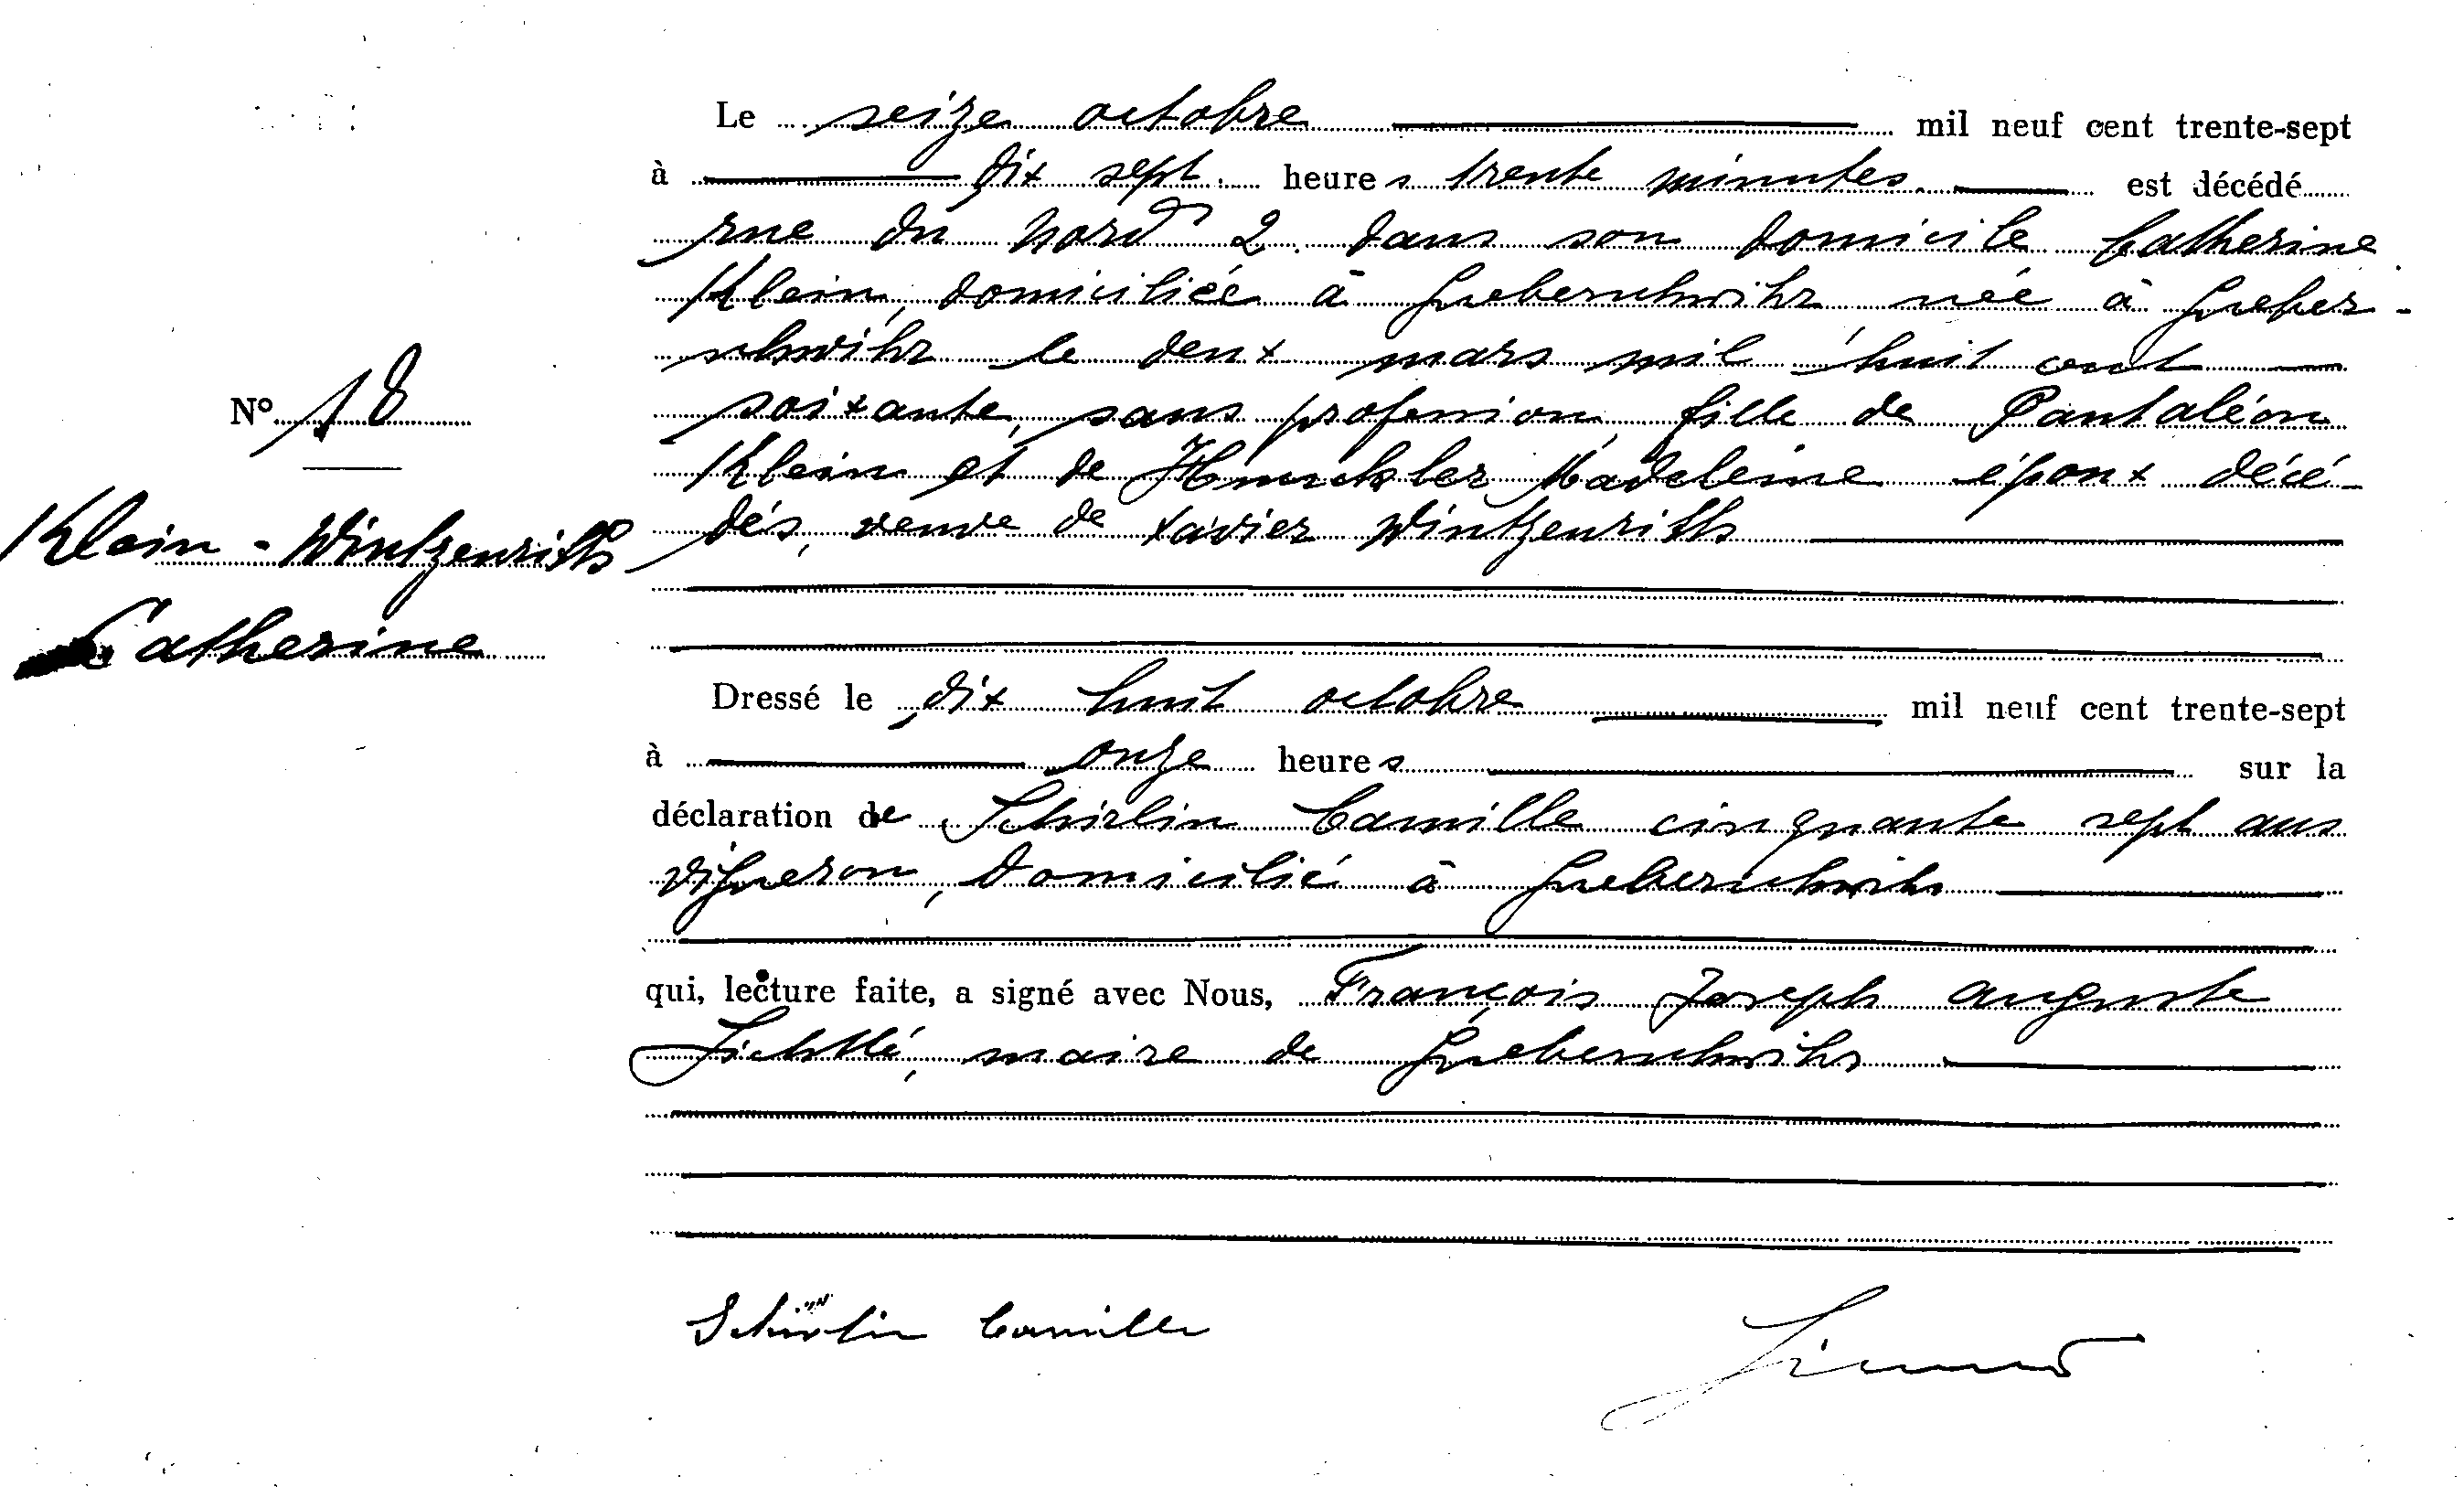 Le seize octobre mil neuf cent trente-sept
à dix sept heures trente minutes est décédé
rue du Nord 2 dans son domicile Catherine
Klein, domiciliée à Gueberschwihr née à Gueber-
schwihr le deux mars mil huit cent
N° 18
soixante, sans profession, fille de Pantaléon
Klein et de Madeleine époux décé-
Klein - Wintzenrith
dés, veuve de Xavier Wintzenrith
Catherine
Dressé le dix huit octobre mil neuf cent trente-sept
à onze heures sur la
déclaration de Schirlin Camille cinquante sept ans
vigneron, domicilié à Gueberschwihr
qui, lecture faite, a signé avec Nous, François Joseph Auguste
maire de Gueberschwihr
Schirlin Camille